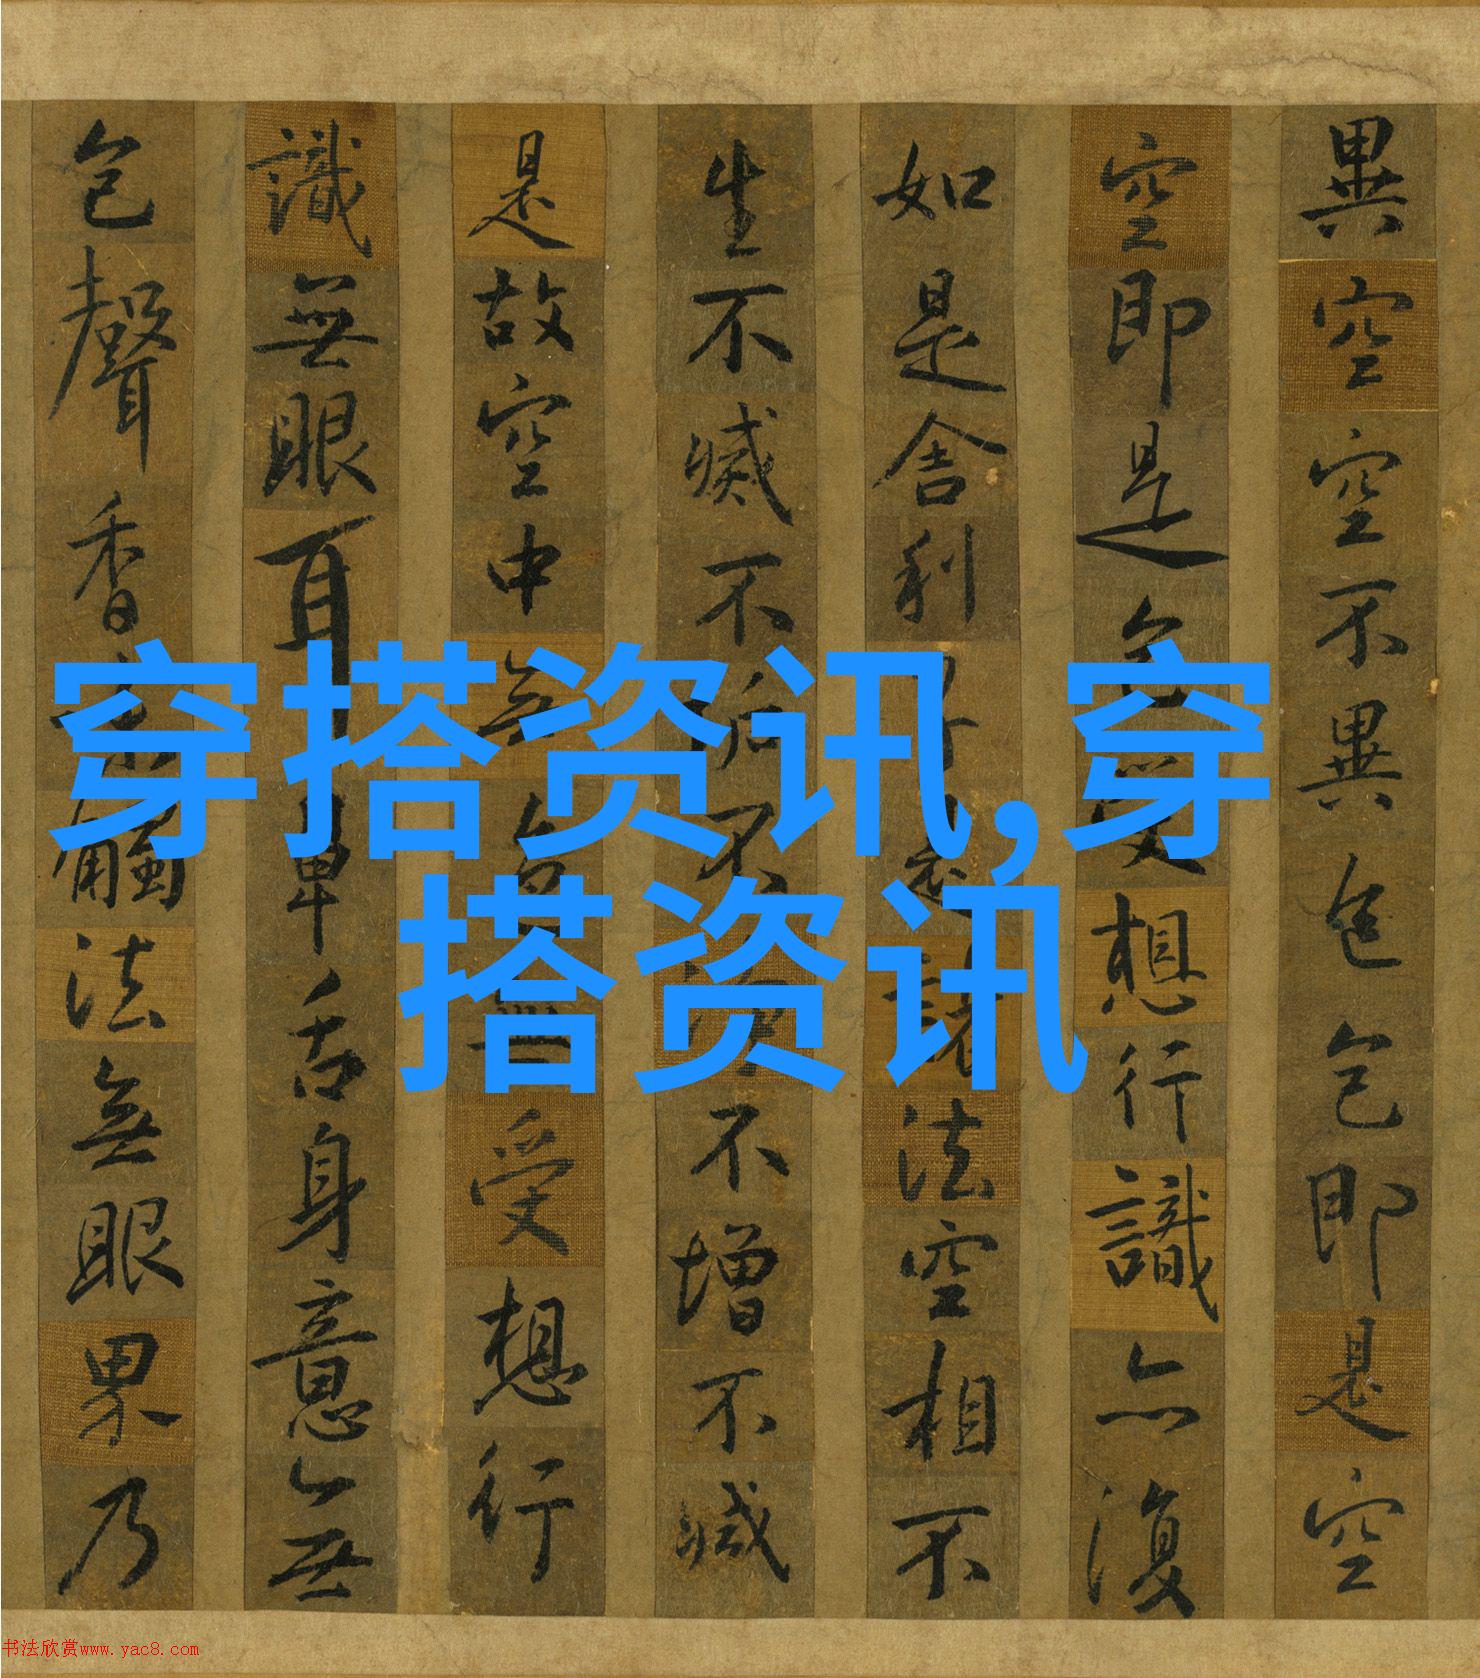 異空空不異色色即是空
空即是色受想行識亦復
如是舍利子是諸法空相不
生不滅不垢不淨不增不減
是故空中無色無受想行
識無眼耳鼻舌身意無
色聲香味觸法無眼界乃
穿搭资讯,穿
搭资讯
书法欣赏www.yac8.com